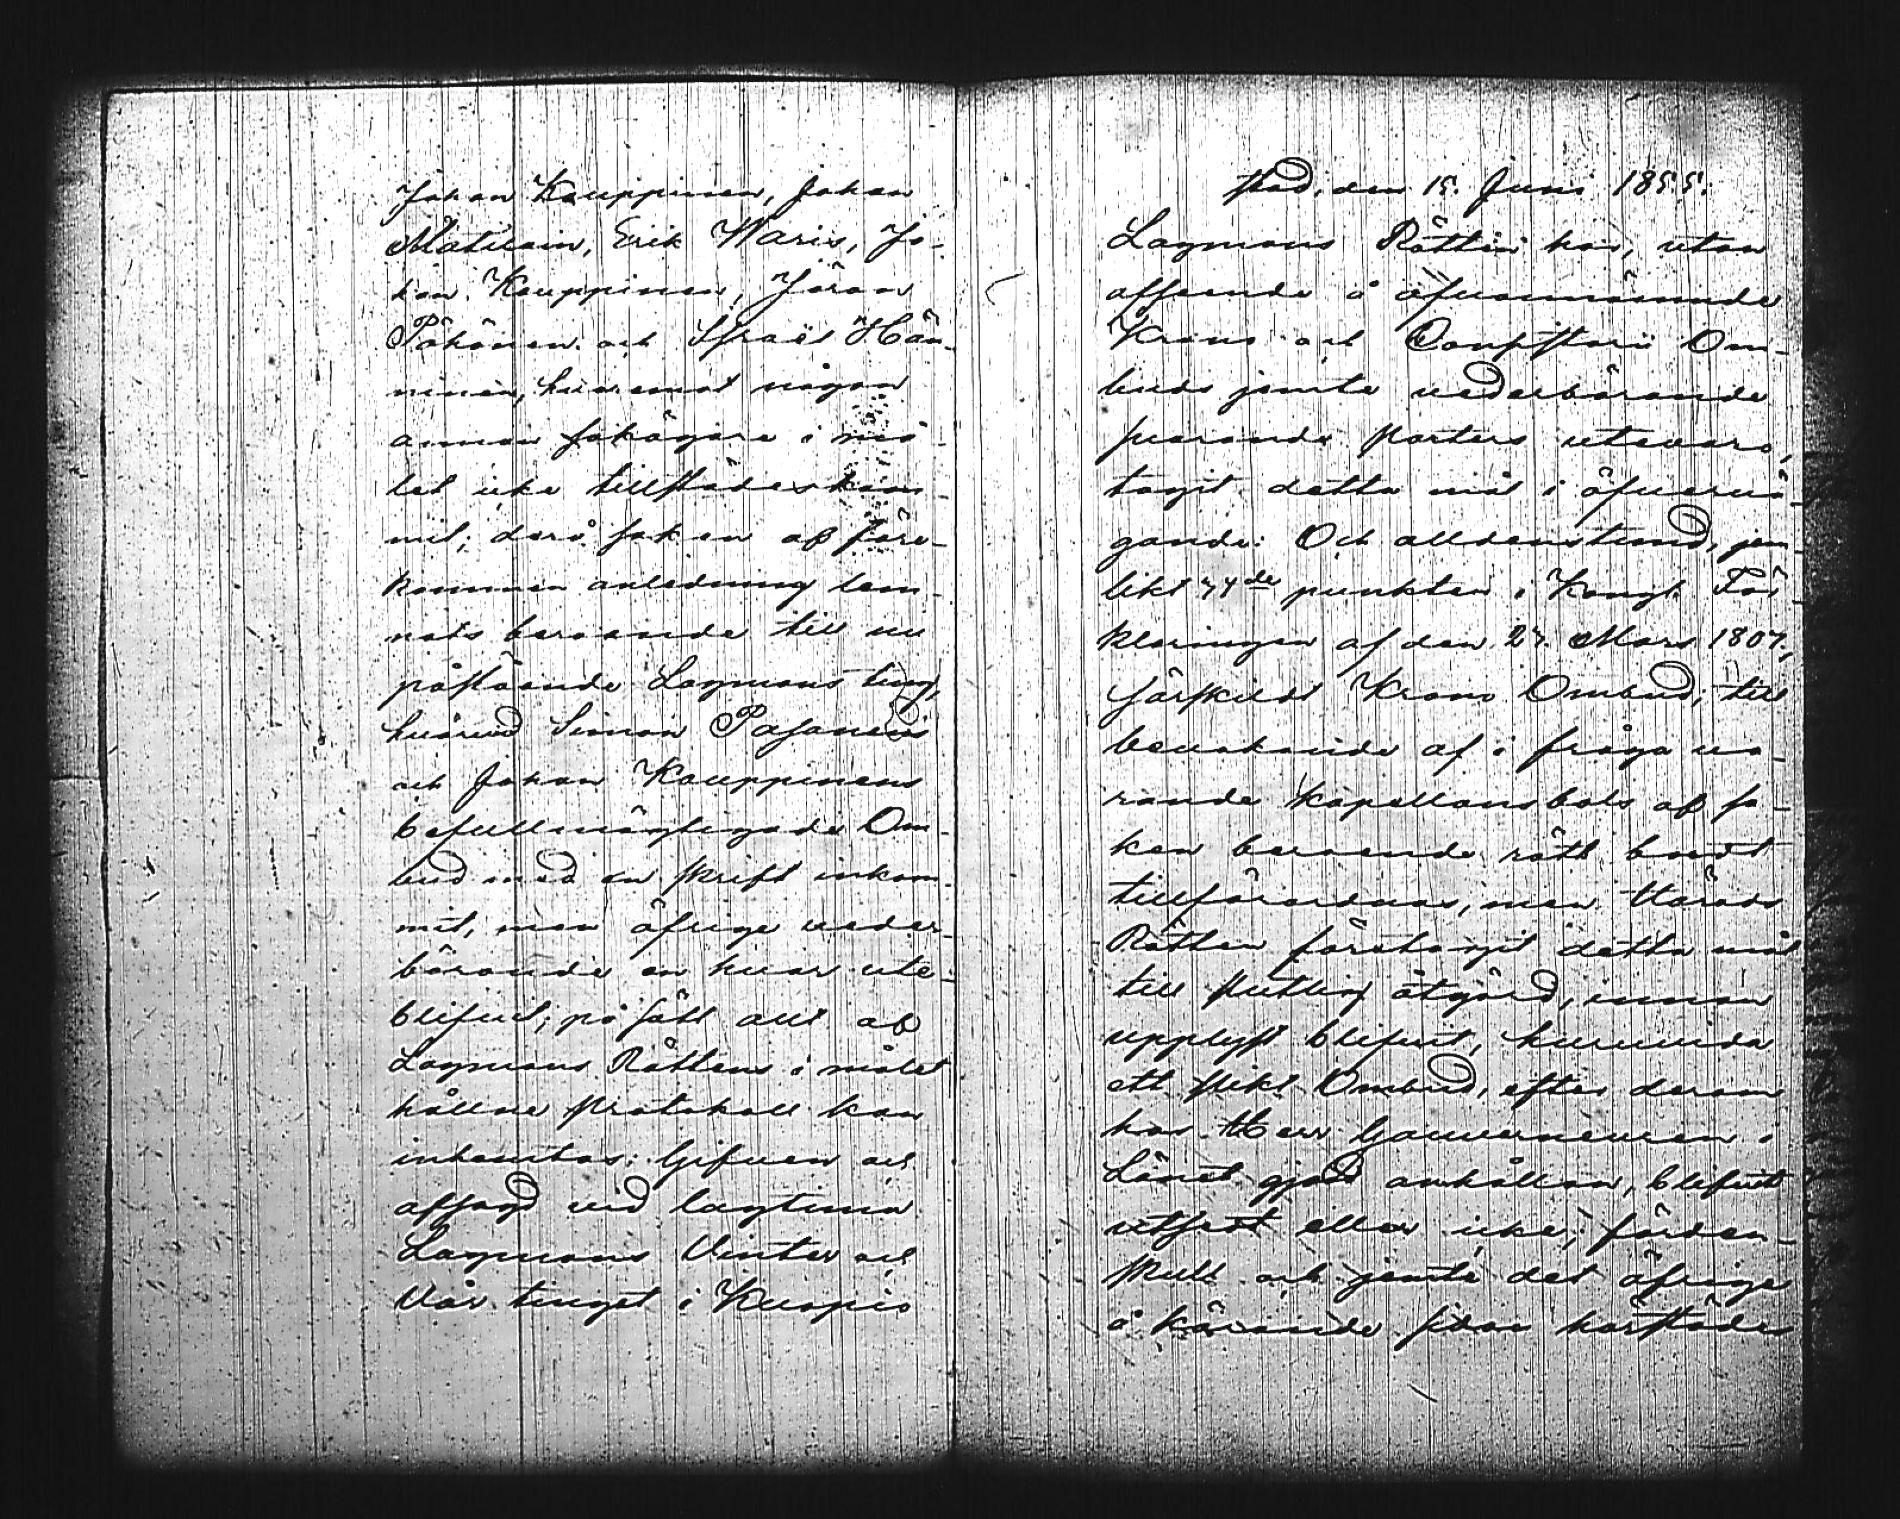 Johan Kauppinen, Johan
Matilain, Erik Waris, Jo-
han Kauppinen, Jöran
Pöhönen och Israel Hän-
ninen, hvaremot någon
annan sakägare i må-
let icke tillstädeskom-
mit; derå saken af före-
kommen anledning lem-
nats beroende till nu
påstående Lagmans ting,
hvarvid Simon Pasanens
och Johan Kauppinens
befullmägtigade Om-
bud med en skrift inkom-
mit, men öfrige veder-
börande en hvar ute-
blifvit; på sätt allt af
Lagmans Rättens i målet
hållne Protokoll kan
inhemtas: Gifven och
afsagd vid lagtima
Lagmans Vinter och
Vår tinget i Kuopio
stad, den 15. Juni 1855.
Lagmans Rätten har, utan
afseende å ofvannämnde
Krono och Consistorii Om-
buds jemte vederbörande
svarande parters utevaro,
tagit detta mål i öfvervä-
gande: Och alldenstund, jem-
likt 77de punkten i Kongl. För-
klaringen af den 27. Mars 1807,
särskildt Krono Ombud, till
bevakande af i fråga va-
rande kapellansbols af sa-
ken beroende rätt bordt
tillförordnas, men Härads
Rätten företagit detta mål
till slutlig åtgärd, innan
upplyst blifvit, huruvida
ett slikt Ombud, efter derom
hos Herr Gouverneuren i
Länet gjord anhållan, blifvit
utsedt eller icke; förden-
skull och jemte det öfrige
å kärande sidan härstädes